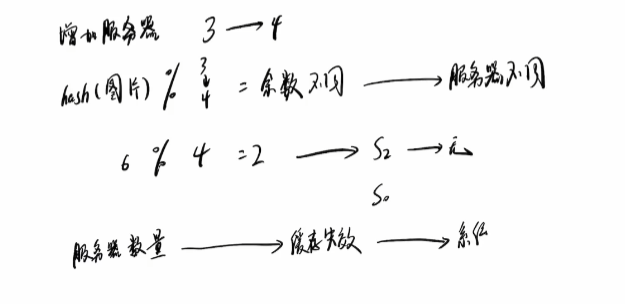 增加服务器 3 → 4
hash(图片) % 3 ↓ 4 = 余数不同 → 服务器不同
6 % 4 = 2 → S2 → 无
S0
服务器数量 → 缓存失效 → 系